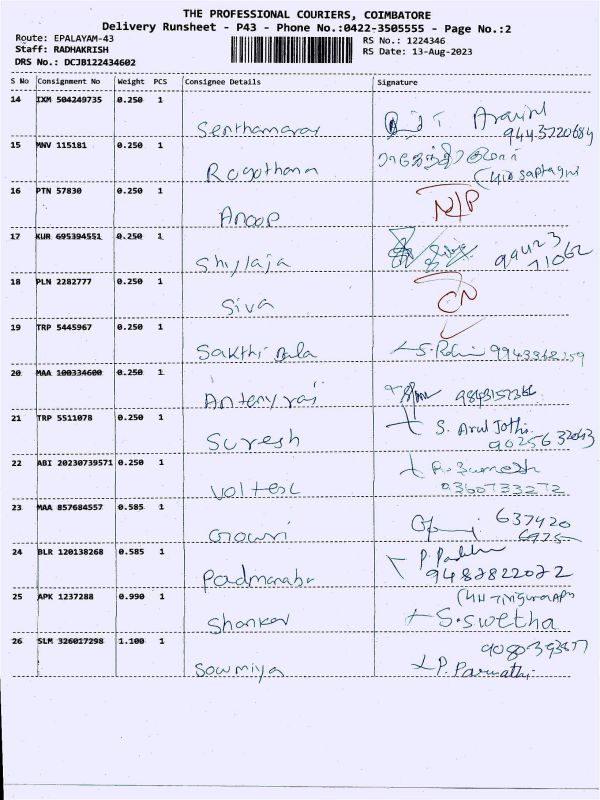 THE PROFESSIONAL COURIERS, COIMBATORE
Delivery Runsheet - P43 - Phone No.:0422-3505555 - Page No.:2
Route: EPALAYAM-43 RS No.: 1224346
Staff: RADHAKRISH RS Date: 13-Aug-2023
DRS No.: DCJB122434602
S No Consignment No Weight PCS Consignee Details Signature
14 IXM 504249735 0.250 1
Senthamarai
15 MNV 115181 0.250 1
Ragothama
16 PTN 57830 0.250 1 N/P
Anoop
17 KUR 695394551 0.250 1
Shylaja 99423
71062
18 PLN 2282777 0.250 1 CN
Siva
19 TRP 5445967 0.250 1
Sakthi Bala
20 MAA 100334600 0.250 1
Antony raj
21 TRP 5511078 0.250 1 S. Arul Jothi
Suresh
22 ABI 20230739571 0.250 1
Voltesc 9360733272
23 MAA 857684557 0.585 1 637420
Gowri
24 BLR 120138268 0.585 1
Padmanabr 9487822072
25 APK 1237288 0.990 1
Shankar S. Swetha
26 SLM 326017298 1.100 1
Sowmiya P. Parvathi